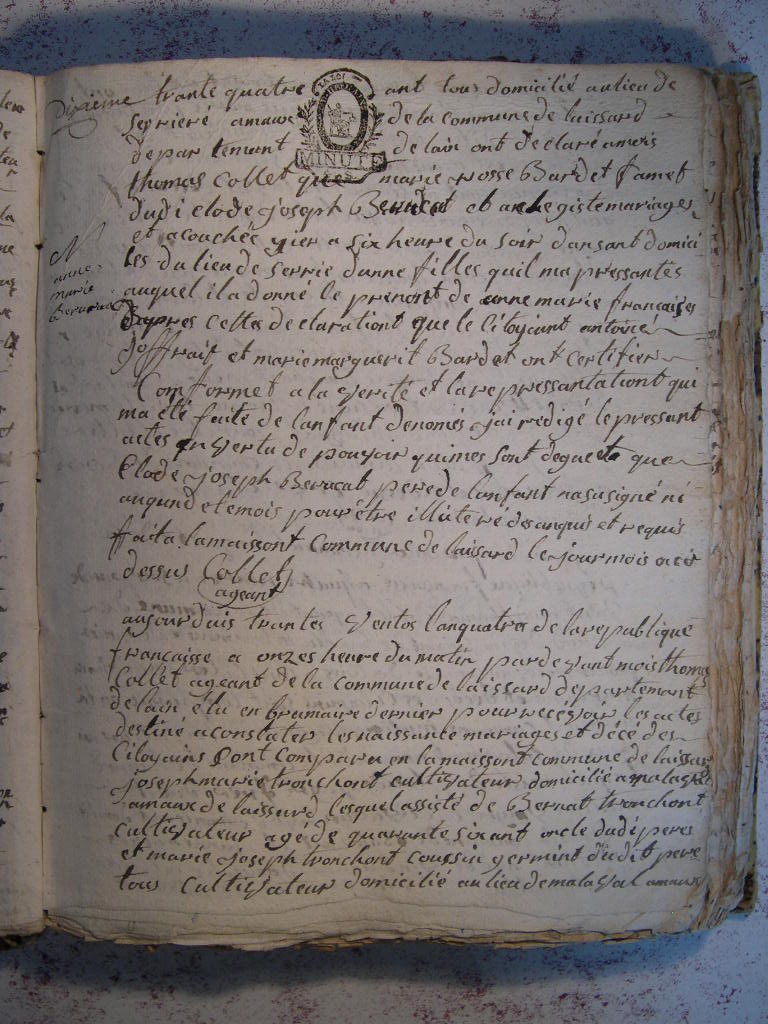 dixieme trante quatre ant tous domicilié au lieu de
LA LOI
serrieré amaux de la commune de laissard
MINUTE
departemant de lain ont declaré amois
thomas Collet que marie rosse Bardet famet
dudi clode joseph Berucat et an le giste mariages
et acouchée yier a six heure du soir dans ant domici
les du lieu de serrie dunne filles quil ma pressantés
N
anne
marie
Berucat
auquel il a donné le prenont de anne marie françaises
dapres cettes declarationt que le Citoÿaint antoine
joffrait et marie marguerit Bardet ont certifier
Comformet a la verité et la repressantationt qui
ma été faite de lanfant denomés jai redigé le pressant
actes en vertu de pouvoir qui mes sont deguets que
Clode joseph Berucat pere de lanfant na susigné ni
augund etemois pour être illiteré désanquis et requis
fait a la maissont Commune de laisard le jour mois a ci
dessus Collet
ageant
aujourduis trantes Ventos lanquatres de la republique
francaisse a onzes heure du matin par de vant mois thomas
Collet ageant de la commune de laissard departemant
de lain élu en brumaire dernier pour recésvoir les actes
destiné a constater les naissante mariages et décé des
Citoyains Sont Comparu en la maissont commune de laissar
joseph marie tronchont cultivateur domicilié a malaval
amaux de laissard lesquel assisté de Bernat tronchont
cultivateur agé de quarante six ant oncle dudi peres
et marie joseph tronchont coussin germint dudit pere
tous cultivateur domicilié au lieu de malaval amaux